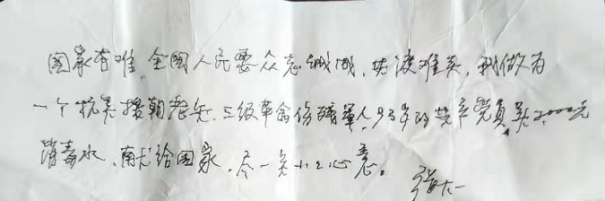 国家有难，全国人民要众志成城，共渡难关，我做为
一个抗美援朝老兵、三级革命伤残军人93岁的共产党员买2000元
消毒水，献给国家，尽一点小小心意。